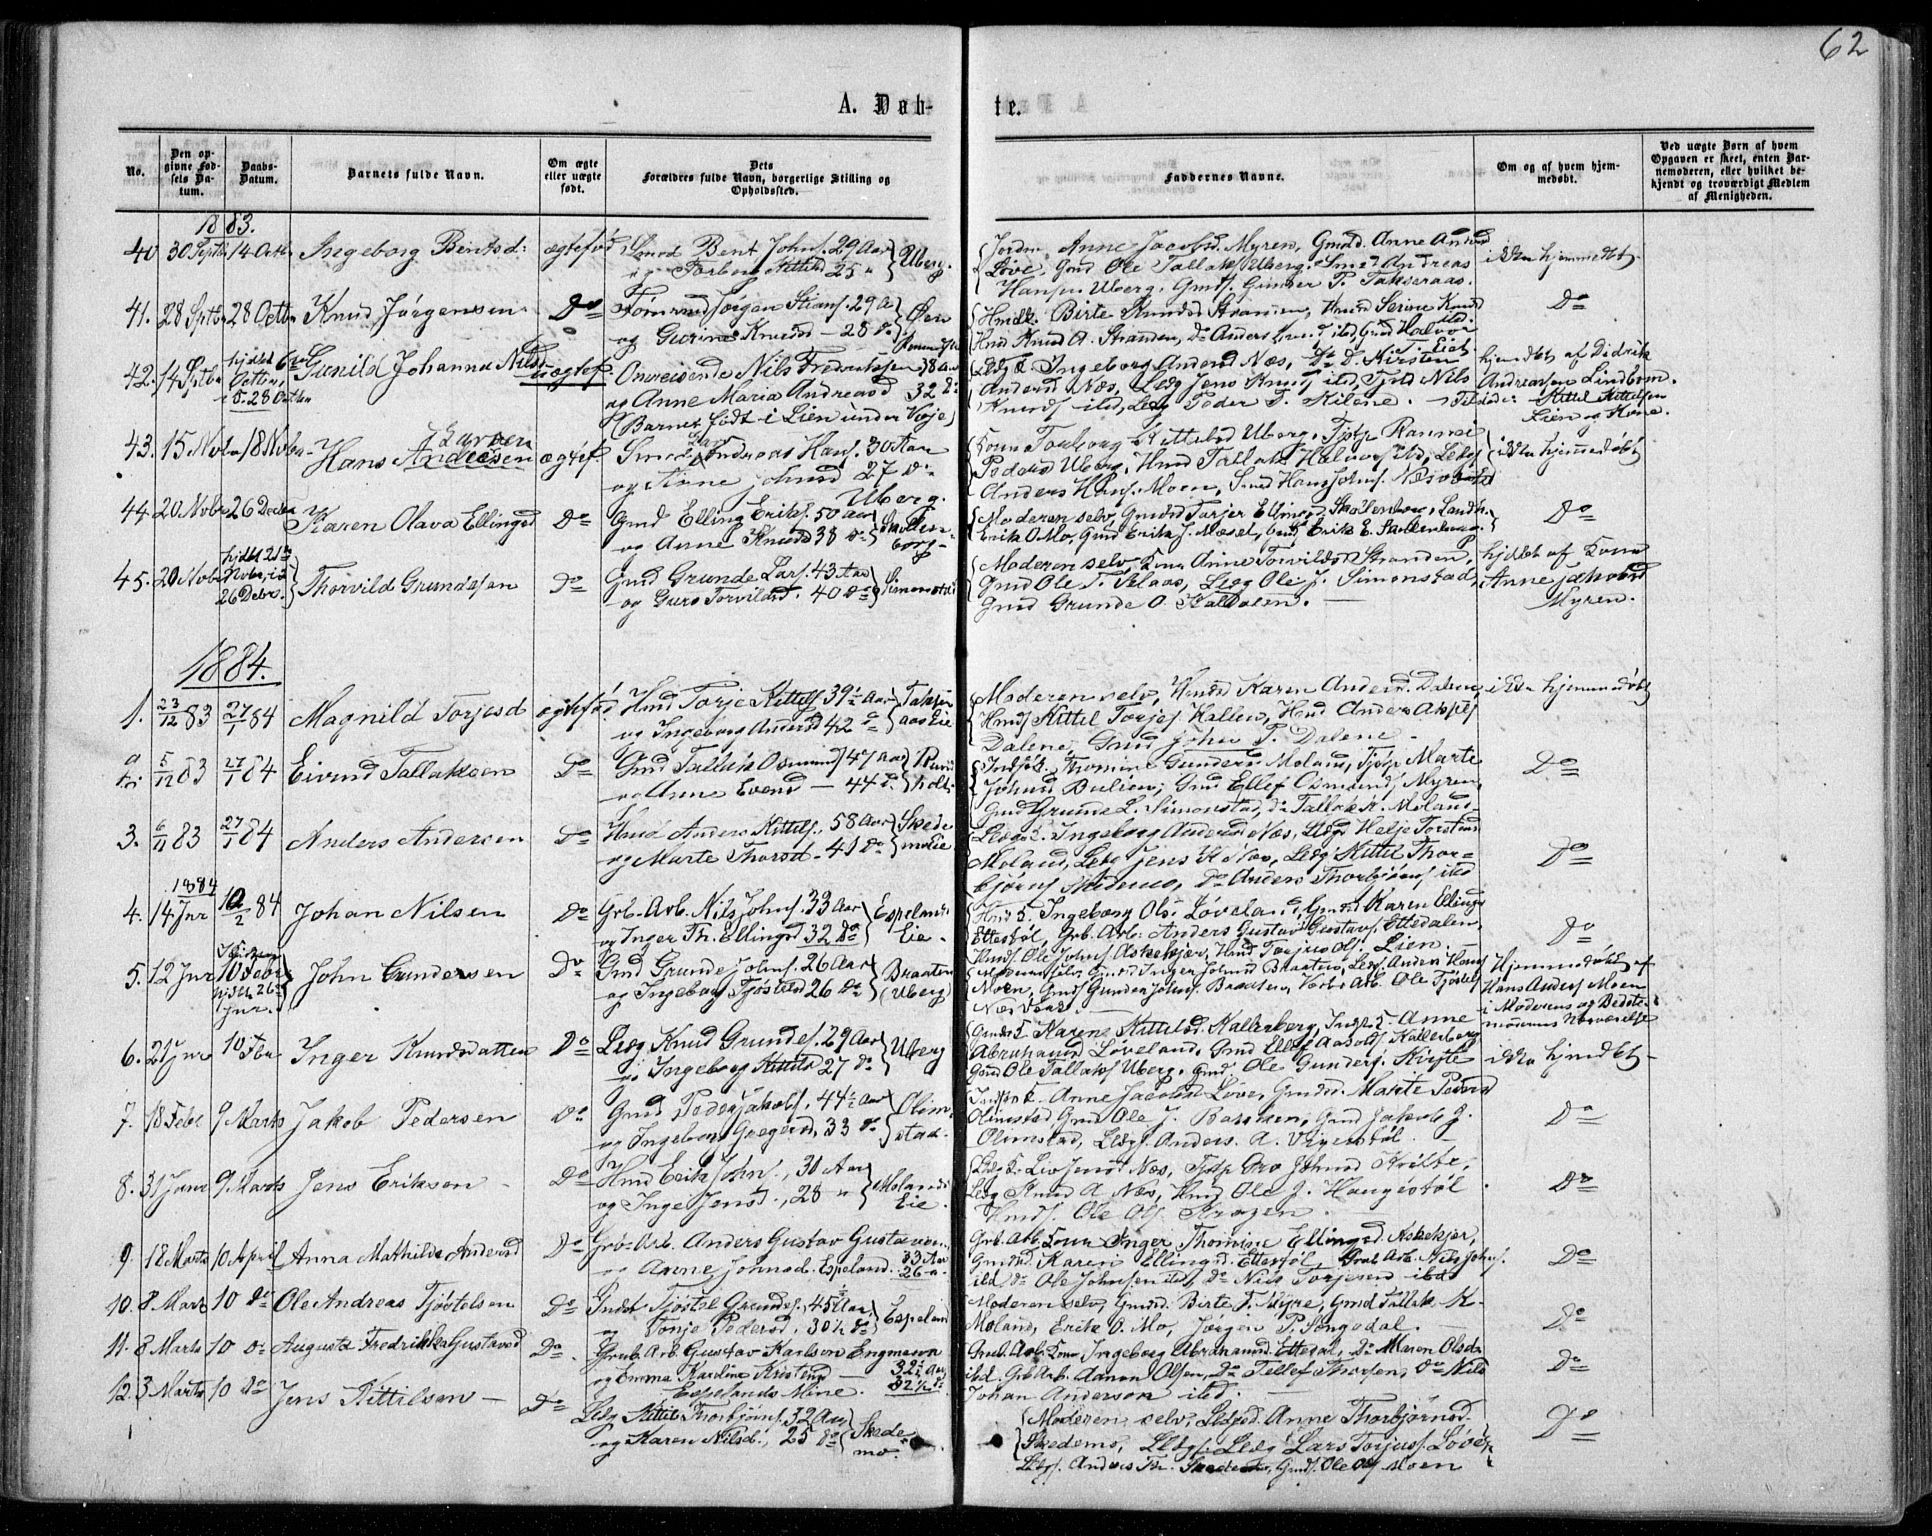 62
A. Døb-
te.
No.
Den opgivne Fødsels Datum.
Daabs-Datum.
Barnets fulde Navn.
Om ægte eller uægte født.
Dets Forældres fulde Navn, borgerlige Stilling og Opholdssted.
Faddernes Navne.
Om og af hvem hjemmedøbt.
Ved uægte Børn af hvem Opgaven er skeet, enten Barnemoderen, eller hvilket bekjendt og troværdigt Medlem af Menigheden.
1883.
40 30 Septbr 14 Octbr Ingeborg Bentsd: ægtefød Smed Bent Johns. 29 Aar
og Torborg Kittilsd 25 " Uberg.
Jordm. Anne Jacobsd. Myren, Gmdd. Anne Andersd
Løve, Gmd Ole Tallaks. Uberg, Smed Andreas
Hansen Uberg, Gmds. Gunder T. Takseraas.
ikke hjemmedøbt
41. 28 Sptbr 28 Octbr Knud Jørgensen Do Tømrmd Jørgen Stians. 29 Aar
og Gurine Knudsd — 28 Do Øen
Birte Knudsd Stranden, Serine Knudsd
Hmd Knud A. Stranden, Do Anders
Do
42. 14 Sptbr hjdbt 6te Octbr, i K. 28 Octbr Gunild Johanna Nilsd uægtef. Omreisende Nils Fredriksen, 38 Aar
og Anne Maria Andreasd 32 Do
(Barnet født i Lien under Veje)
Ingeborg Andersd Næs, Kirsten
Andersd Næs, Ledg Jens Knuds. ibd, Nils
Knuds. ibd, Ledg Peder T. Kilene.
hjemdøbt af Didrik
Andreassen Lindbom
Kittel Kittelsen
Lien og Kone.
43. 15 Novbr 18 Novbr Hans Larsen Andersen ægtef. Smed Lars Andreas Hans. 30 Aar
og Anne Johnsd 27 Do
Uberg.
Kone Torborg Kittelsd Uberg, Tjpig Ranni
Pedersd Uberg, Hmd Tallak Halvors. ibd, Ledg
Anders Hans. Moen, Smed Hans Johns. Næsverket
ikke hjemmedøbt
44. 20 Novbr 26 Decbr Karen Olava Ellingsd Do Gmd Elling Eriks. 50 Aar
og Anne Knudsd 38 Do Skollenborg
Moderen selv, Gmdsd Torjer Ellingsd. Skollenborg, Landh.
Erik O. Mo, Gmd Erik J. Mæsel, Gmd Erik E. Skollenborg.
Do
45. 20 Novbr hjdbt 21de Novbr, i K. 26 Debr. Thorvild Grundesen Do Gmd Grunde Lars. 43 Aar
og Guro Torvildsd. 40 Do Simonstad
Moderen selv, Kone Anne Torvildsd Stranden,
Gmd Ole T. Selaas, Ledg Ole J. Simonstad,
Gmd Grunde O. Kaldalen. —
hjdbt af Kone
Anne Jakobsd
Myren.
1884.
1. 23/12 83 27/1 84 Magnild Torjesd ægtefød Hmd Torje Kittels. 39½ Aar
og Ingeborg Andersd 42 Do Takseraas Eie
Moderen selv, Hmdsd Karen Andersd. Dalene,
Hmds. Kittel Torjes. Kallen, Hmd Anders Asps.
Dalene, Gmd John T. Dalene.
ikke hjemmedøbt
2. 5/12 83 27/1 84 Eivind Tallaksen Do Gmd Tallak Osmunds. 47 Aar
og Anne Evensd — 44 D.
Indsk. Thomine Gunders. Moland, Tjpig Marte
Johnsd Bulien, Gmd Ellef Osmunds. Myren,
Gmd Grunde L. Simonstad, do Tallak K. Moland
Do
3. 6/11 83 27/1 84 Anders Andersen Do Hmd Anders Kittels. 58 Aar
og Marte Thorsd. 41 Do Skedemo Eie
Ledg Ingeborg Andersd Næs, Ledg Helje Torstens.
Moland, Ledg Jens K. Næs, Ledg Kittil Thor=
bjørns. Skedemo, Do Anders Thorbjørns. ibd
Do
1884
4. 14 Jnr 10/2 84 Johan Nilsen Do Grb. Arb. Nils Johns. 33 Aar
og Inger Th. Ellingsd 32 Do Espelands Eie
Ingeborg Ols. Løveland, Gmdsd Karen Ellingsd
Ettestøl, Grb. Arb. Anders Gustav Gustavs. Ettedalen,
Hmds Ole Johns Askekjær, Hmd Torjus Ols. Lien.
Do
5. 12 Jnr 10 Febr, hjdbt 26 Jnr. John Gundersen Do Gmd Grunde Johns. 26 Aar
og Ingeborg Tjøstelsd 26 Do Braaten (Uberg)
Moderen selv, Inger Johnsd Braaten, Ledg. Anders Hans.
Moen, Gmds Gunder Johns. Braaten, Verks Arb. Ole Tjøstels.
Næs Værk.
Hjemmedøbt af
Hans Anders. Moen
i Moderens og Bedste-
moderens Nærværelse
6. 21 Jnr 10 Fbr Inger Knudsdatter Do Ledg Knud Grundes. 29 Aar
og Ingeborg Kittelsd 27 Do Uberg
Karen Kittilsd. Kallerberg, Indsk. K. Anne
Abrahamsd Løveland, Gmd Ellef Aasolds. Kallerberg
Gmd Ole Tallaks Uberg, Gmd. Ole Gunders. Kviste
ikke hjemdbt
7. 18 Febr 9 Marts Jakob Pedersen Do Gmd Peder Jakobs. 44½ Aar
og Ingeborg Gregersd, 33 Do Olimstad
Anne Jacobsd Løve, Gmdsd. Marte Pedersd
Olimstad, Gmd Ole J. Baasmen, Gmd Jakob J.
Olimstad, Ledg. Anders A. Vigerstøl.
Do
8. 31 Janr 9 Marts Jens Eriksen Do Hmd Erik Johns., 30 Aar
og Inge Jensd, 28 " Molands Eie.
Ledg K. Liv Jensd Næs, Tjpig Gro Johnsd Kviste,
Ledg Knud A. Næs, Hmd Ole J. Haugestøl
Hmds. Ole Ols. Krogen.
Do
9. 18 Marts 10 April Anna Mathilde Andersd Do Grb. Arb. Anders Gustav Gustavsen, 33 Aar
og Anne Johnsd. Espeland. 26 "
Grb. Arb. Kone Inger Thomine Ellingsd. Askekjær,
Gmdsd. Karen Ellingsd. Ettestøl, Grb. Arb. Nils Johns.
ibd Do Ole Johnsen ibd, Do Nils Torjesen ibd
Do
10. 8 Marts 10 Do Ole Andreas Tjøstelsen Do Indst. Tjøstel Grundes. 45½ Aar
og Tonje Pedersd. 30½ Do Espeland
Moderen selv, Gmdsd. Birte T. Myre, Gmd Tallak K.
Moland, Erik O. Mo, Jørgen P. Songedal.
Do
11. 8 Marts 10 Do Augusta Fredrikka Gustavsd Do Grub. Arb. Gustav Karlsen Engmann 32½ Aar
og Emma Karoline Kristensd 32½ Do
Espelands Mine.
Grub. Arb. Kone Ingeborg Abrahamsd Ettedal, Do Maren Olsd
ibd. Grb Arb. Aanon Olsen, Do Tellef Thorsen, Do Nils
Johan Anderson ibd.
Do
12. 3 Marts 10 Do Jens Kittilsen — Do Ledg Kittil Thorbjørns. 32 Aar
og Karen Nilsd., 25 Do Skedemo.
Moderen selv, Ledgsd. Anne Thorbjørnsd.
Skedemo, Ledgs. Ledg Lars Torjus. Løve,
Ledgs. Anders Th. Skedemo, Gmds. Ole Ols Moen
Do